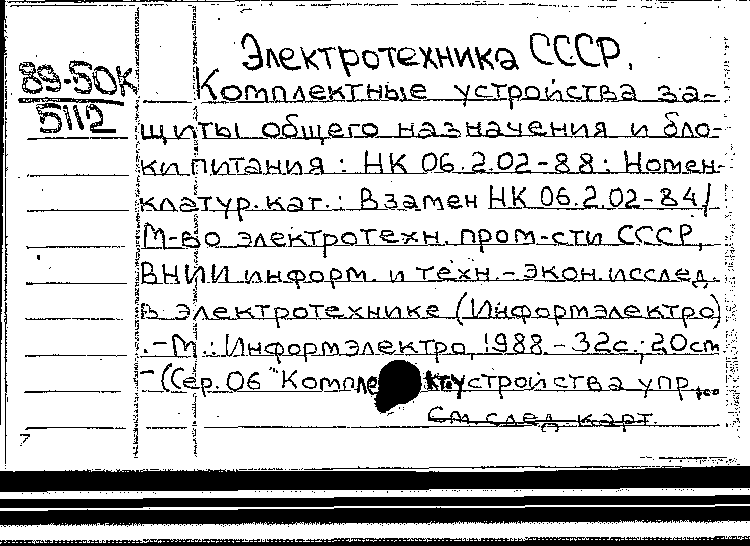 Электротехника СССР.
89-50К
5112
Комплектные устройства за-
щиты общего назначения и бло-
ки питания: НК 06.2.02-88: Номен-
клатур. кат.: Взамен НК 06.2.02-84/
М-во электротехн. пром-сти СССР,
ВНИИ информ. и техн.-экон. исслед.
в электротехнике (Информэлектро)
.-М.: Информэлектро, 1988.-32с.; 20см
-(Сер. 06 "Компле кт. устройства упр
См след. карт.
7